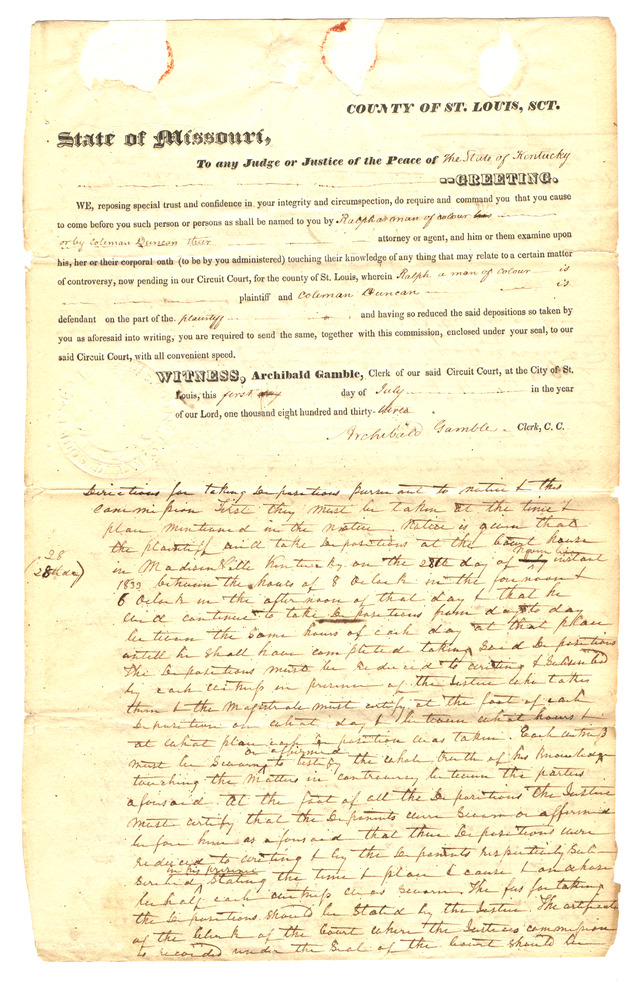 COUNTY OF ST. LOUIS, SCT.
State of Missouri,
To any Judge or Justice of the Peace of the State of Kentucky
--GREETING.
WE, reposing special trust and confidence in your integrity and circumspection, do require and command you that you cause
to come before you such person or persons as shall be named to you by Ralph a man of colour
or by Coleman Duncan their attorney or agent, and him or them examine upon
his, her or their corporal oath (to be by you administered) touching their knowledge of any thing that may relate to a certain matter
of controversy, now pending in our Circuit Court, for the county of St. Louis, wherein Ralph a man of colour is
plaintiff and Coleman Duncan is
defendant on the part of the plaintiff, and having so reduced the said depositions so taken by
you as aforesaid into writing, you are required to send the same, together with this commission, enclosed under your seal, to our
said Circuit Court, with all convenient speed.
WITNESS, Archibald Gamble, Clerk of our said Circuit Court, at the City of St.
Louis, this first day of July in the year
of our Lord, one thousand eight hundred and thirty-three
Archibald Gamble Clerk, C. C.
Directions for taking Depositions pursuant to notice & this
Commission First they must be taken at the time &
place mentioned in the notice Notice is given that
the plaintiff will take Depositions at the Court house
28
(28th day)
in Madisonville Kentucky on the 28th day of instant
1833 between the hours of 8 Oclock in the forenoon &
6 Oclock in the afternoon of that day & that he
will continue to take Depositions from day to day
between the same hours of each day at that place
untill he shall have completed taking said Depositions
The Depositions must be reduced to writing & subscribed
by each witness in presence of the Justice who takes
them & the Magistrate must certify at the foot of each
Deposition on what day & between what hours &
at what place each Deposition was taken. Each witness
or affirmed
must be Sworn to testify the whole truth of his Knowledge
touching the Matters in controversy between the parties
aforesaid. At the foot of all the Depositions the Justice
must certify that the Deponents were Sworn or affirmed
before him as aforesaid that these Depositions were
reduced to writing & by the Deponents respectively Sub-
in his presence
scribed Stating the time & place & cause & on whose
behalf each witness was Sworn. The fees for taking
the Depositions should be Stated by the Justice. The certificate
of the Clerk of the Court where the Justices commission
is recorded under the Seal of the Court should be